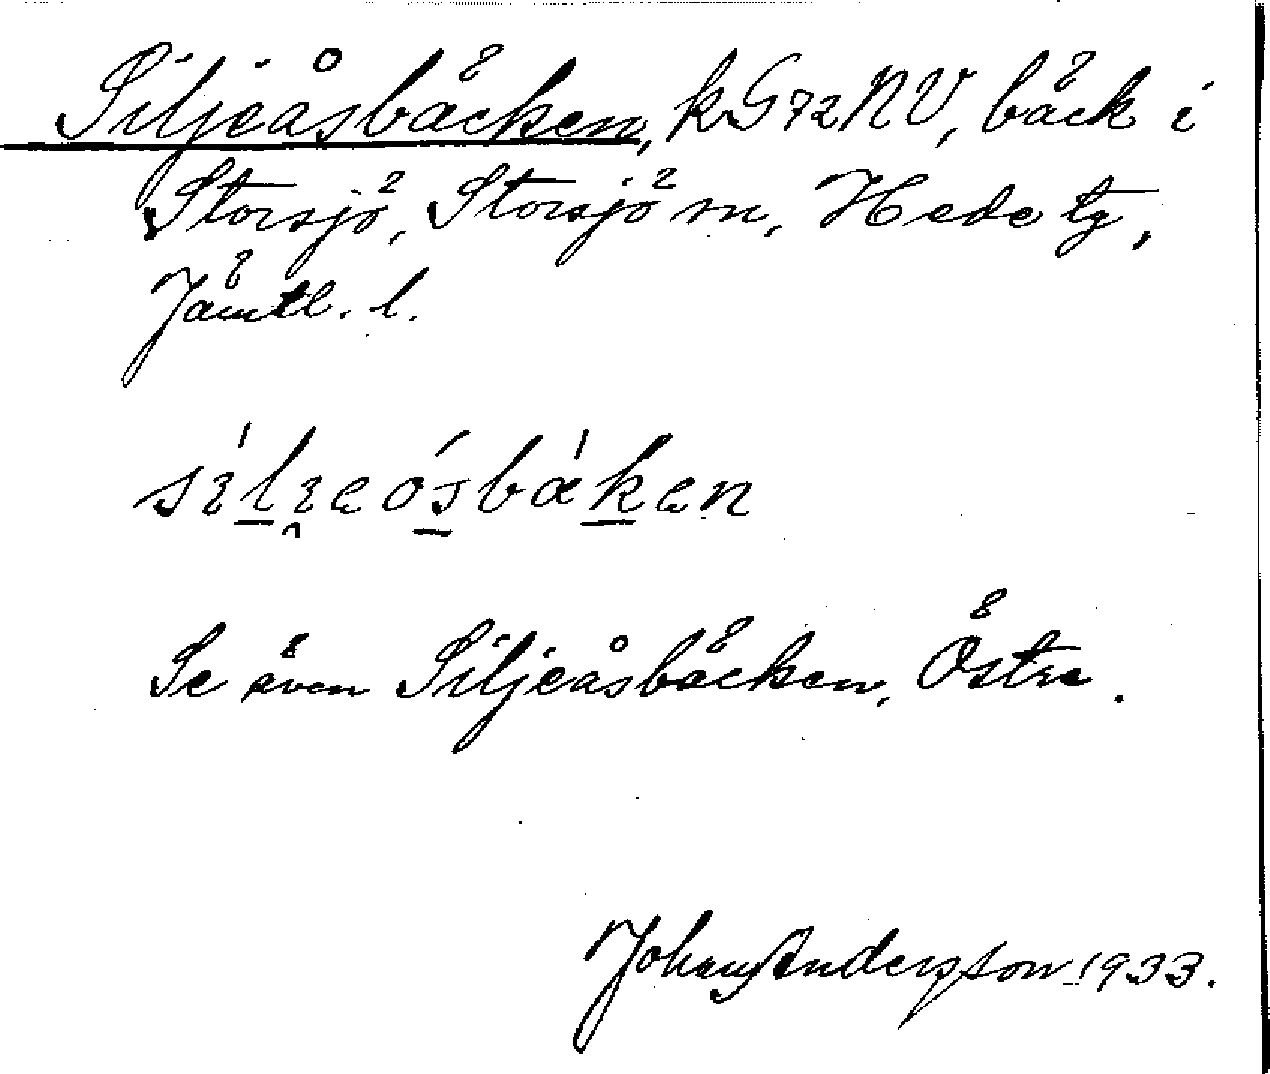 Siljeåsbäcken, kG72NV, bäck i
Storsjö, Storsjö sn, Hede tg,
Jämtl. l.
Se även Siljeåsbäcken, Östra.
Johan Andersson 1933.